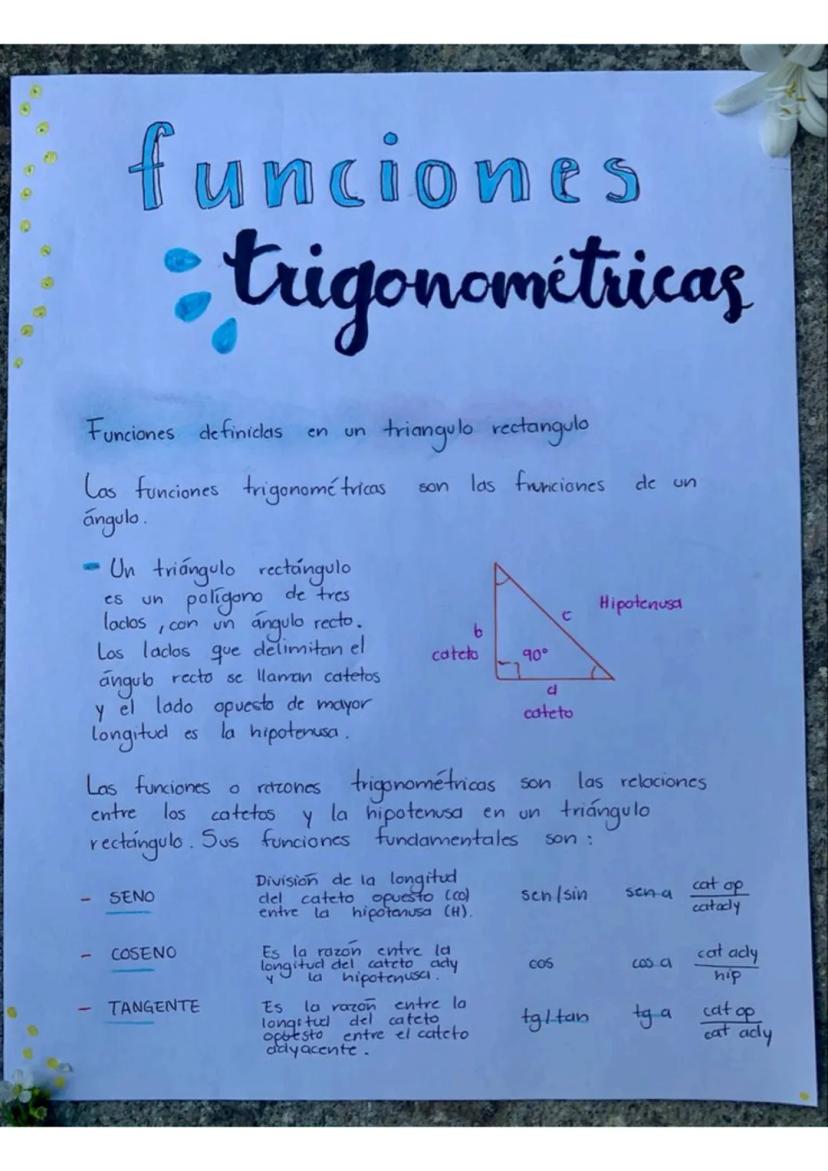 funciones
trigonométricas
Funciones definidas en un triangulo rectangulo
Las funciones trigonométricas son las frunciones de un
ángulo.
- Un triángulo rectángulo
es un polígono de tres
lados, con un ángulo recto.
Los lados que delimitan el
ángulo recto se llaman catetos
y el lado opuesto de mayor
longitud es la hipotenusa.
b
cateto
90°
c
Hipotenusa
a
cateto
Las funciones o razones trigonométricas son las relaciones
entre los catetos y la hipotenusa en un triángulo
rectángulo. Sus funciones fundamentales son:
- SENO
División de la longitud
del cateto opuesto (co)
entre la hipotenusa (H).
sen/sin
sen a
cat op
cat ady
- COSENO
Es la razón entre la
longitud del cateto ady
y la hipotenusa.
cos
cos a
cat ady
hip
- TANGENTE
Es la razón entre la
longitud del cateto
opuesto entre el cateto
adyacente.
tg/tan
tg a
cat op
cat ady